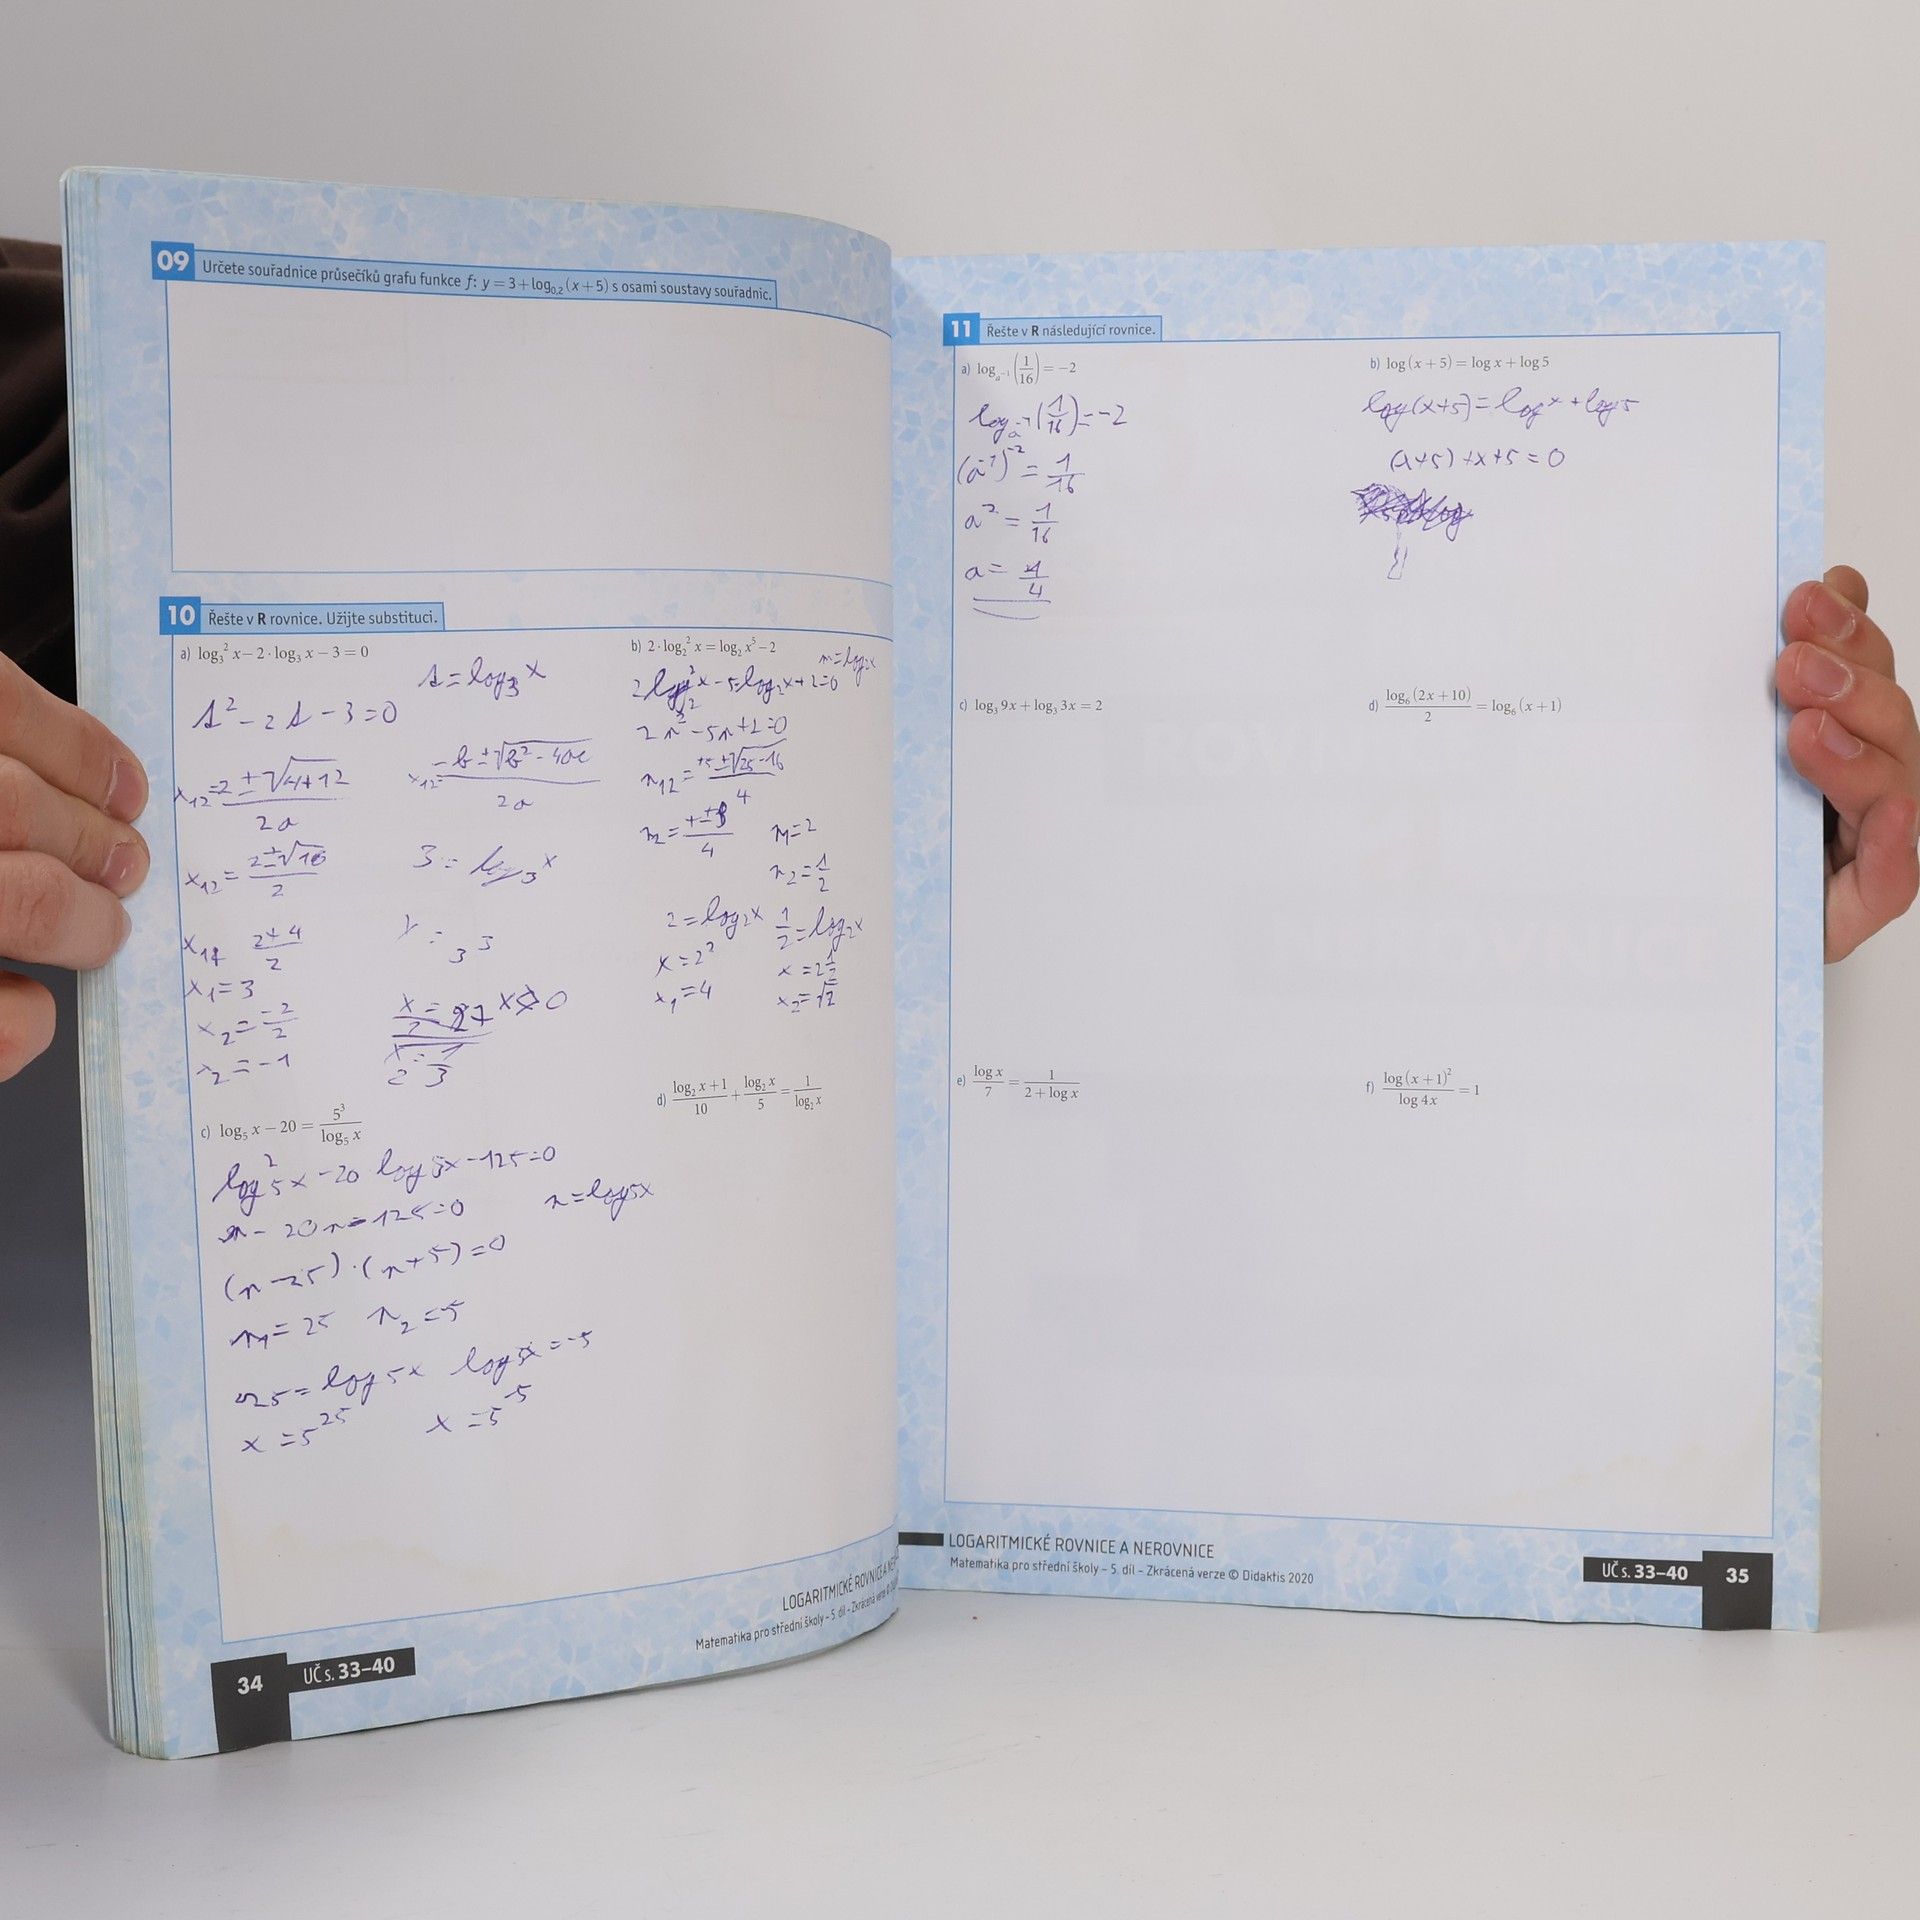 09 Určete souřadnice průsečíků grafu funkce f: y = 3 + log₀,₂ (x + 5) s osami soustavy souřadnic.
10 Řešte v R rovnice. Užijte substituci.
a) log₃² x − 2 · log₃ x − 3 = 0
s = log₃ x
s² − 2s − 3 = 0
x₁₂ = (2 ± √(4+12))/2a
x₁₂ = (−b ± √(b² − 4ac))/2a
x₁₂ = (2 ± √16)/2
3 = log₃ x
(2 + 4)/2
x = 3³
x₁ = 3
x₂ = −2/2
x₂ = −1
x = 27
x₂ = 1/3
b) 2 · log₂² x = log₂ x⁵ − 2
n = log₂x
2n² − 5n + 2 = 0
n₁₂ = (+5 ± √(25 − 16))/4
n₁ = 2
n₂ = 1/2
2 = log₂x 1/2 = log₂x
x = 2² x = 2^(1/2)
x₁ = 4 x₂ = √2
c) log₅ x − 20 = 5³/log₅ x
log₅² x − 20 log₅x − 125 = 0
n = log₅x
n − 20n − 125 = 0
(n − 25) · (n + 5) = 0
n₁ = 25 n₂ = −5
25 = log₅x log₅x = −5
x = 5²⁵ x = 5⁻⁵
d) (log₂ x + 1)/10 + log₂ x/5 = 1/log₂ x
LOGARITMICKÉ ROVNICE A
Matematika pro střední školy – 5. díl – Zkrácená verze
34 UČ s. 33–40
11 Řešte v R následující rovnice.
a) log_a⁻¹ (1/16) = −2
log_a⁻¹ (1/16) = −2
(a⁻¹)⁻² = 1/16
a² = 1/16
a = 1/4
b) log (x + 5) = log x + log 5
log (x+5) = log x + log 5
(x+5) + x + 5 = 0
c) log₃ 9x + log₃ 3x = 2
d) log₆ (2x + 10)/2 = log₆ (x + 1)
e) log x/7 = 1/(2 + log x)
f) log (x + 1)²/log 4x = 1
LOGARITMICKÉ ROVNICE A NEROVNICE
Matematika pro střední školy – 5. díl – Zkrácená verze © Didaktis 2020
UČ s. 33–40 35